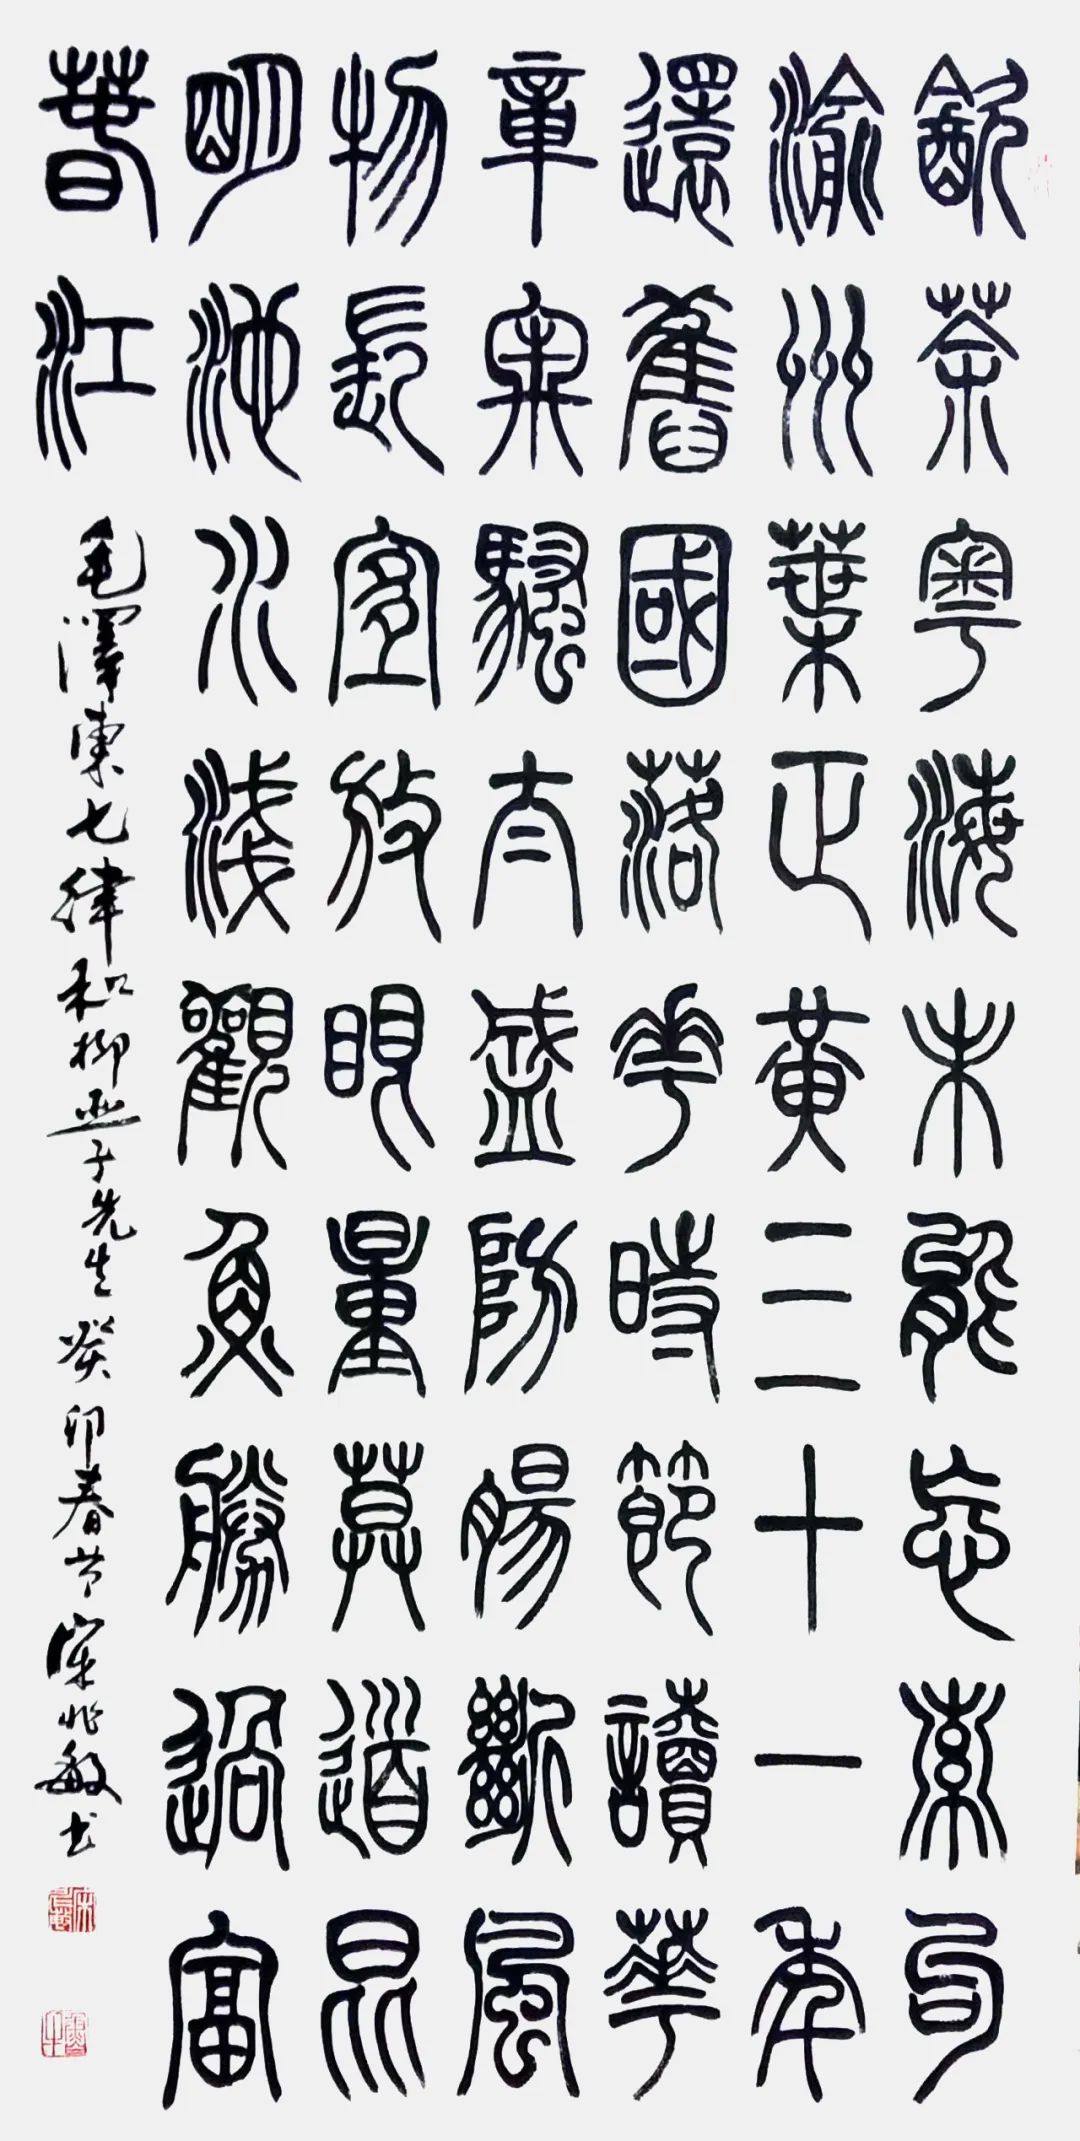 飲茶粵海未能忘索句
渝州葉正黃三十一年
還舊國落花時節讀華
章牢騷太盛防腸斷風
物長宜放眼量莫道昆
明池水淺觀魚勝過富
春江
毛澤東七律和柳亞子先生 癸卯春节 宋兆敏书